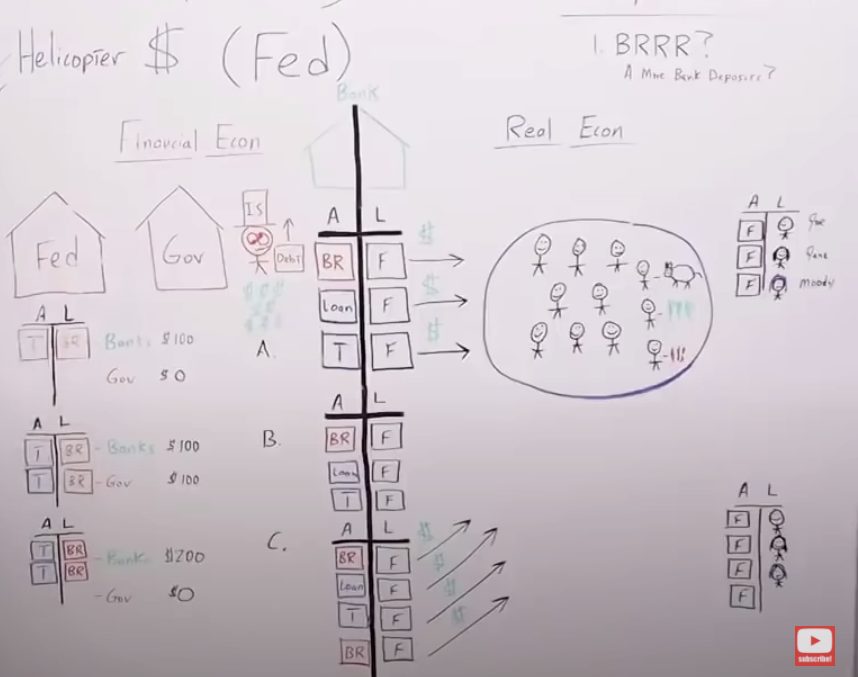 Helicopter $ (Fed)
1. BRRR?
A More Bank Deposits?
Bank
Financial Econ
Real Econ
Fed
Gov
IS
Debt
$ $ $
$ $ $
A L
T BR Banks $100
Gov $0
A.
A L
BR F $
Loan F $
T F $
A L
F Joe
F Jane
F Moody
A L
T BR - Banks $100
T BR - Gov $100
B.
A L
BR F
Loan F
T F
A L
T BR - Banks $200
T BR
- Gov $0
C.
A L
BR F $
Loan F $
T F $
BR F $
A L
F
F
F
F
subscribe!